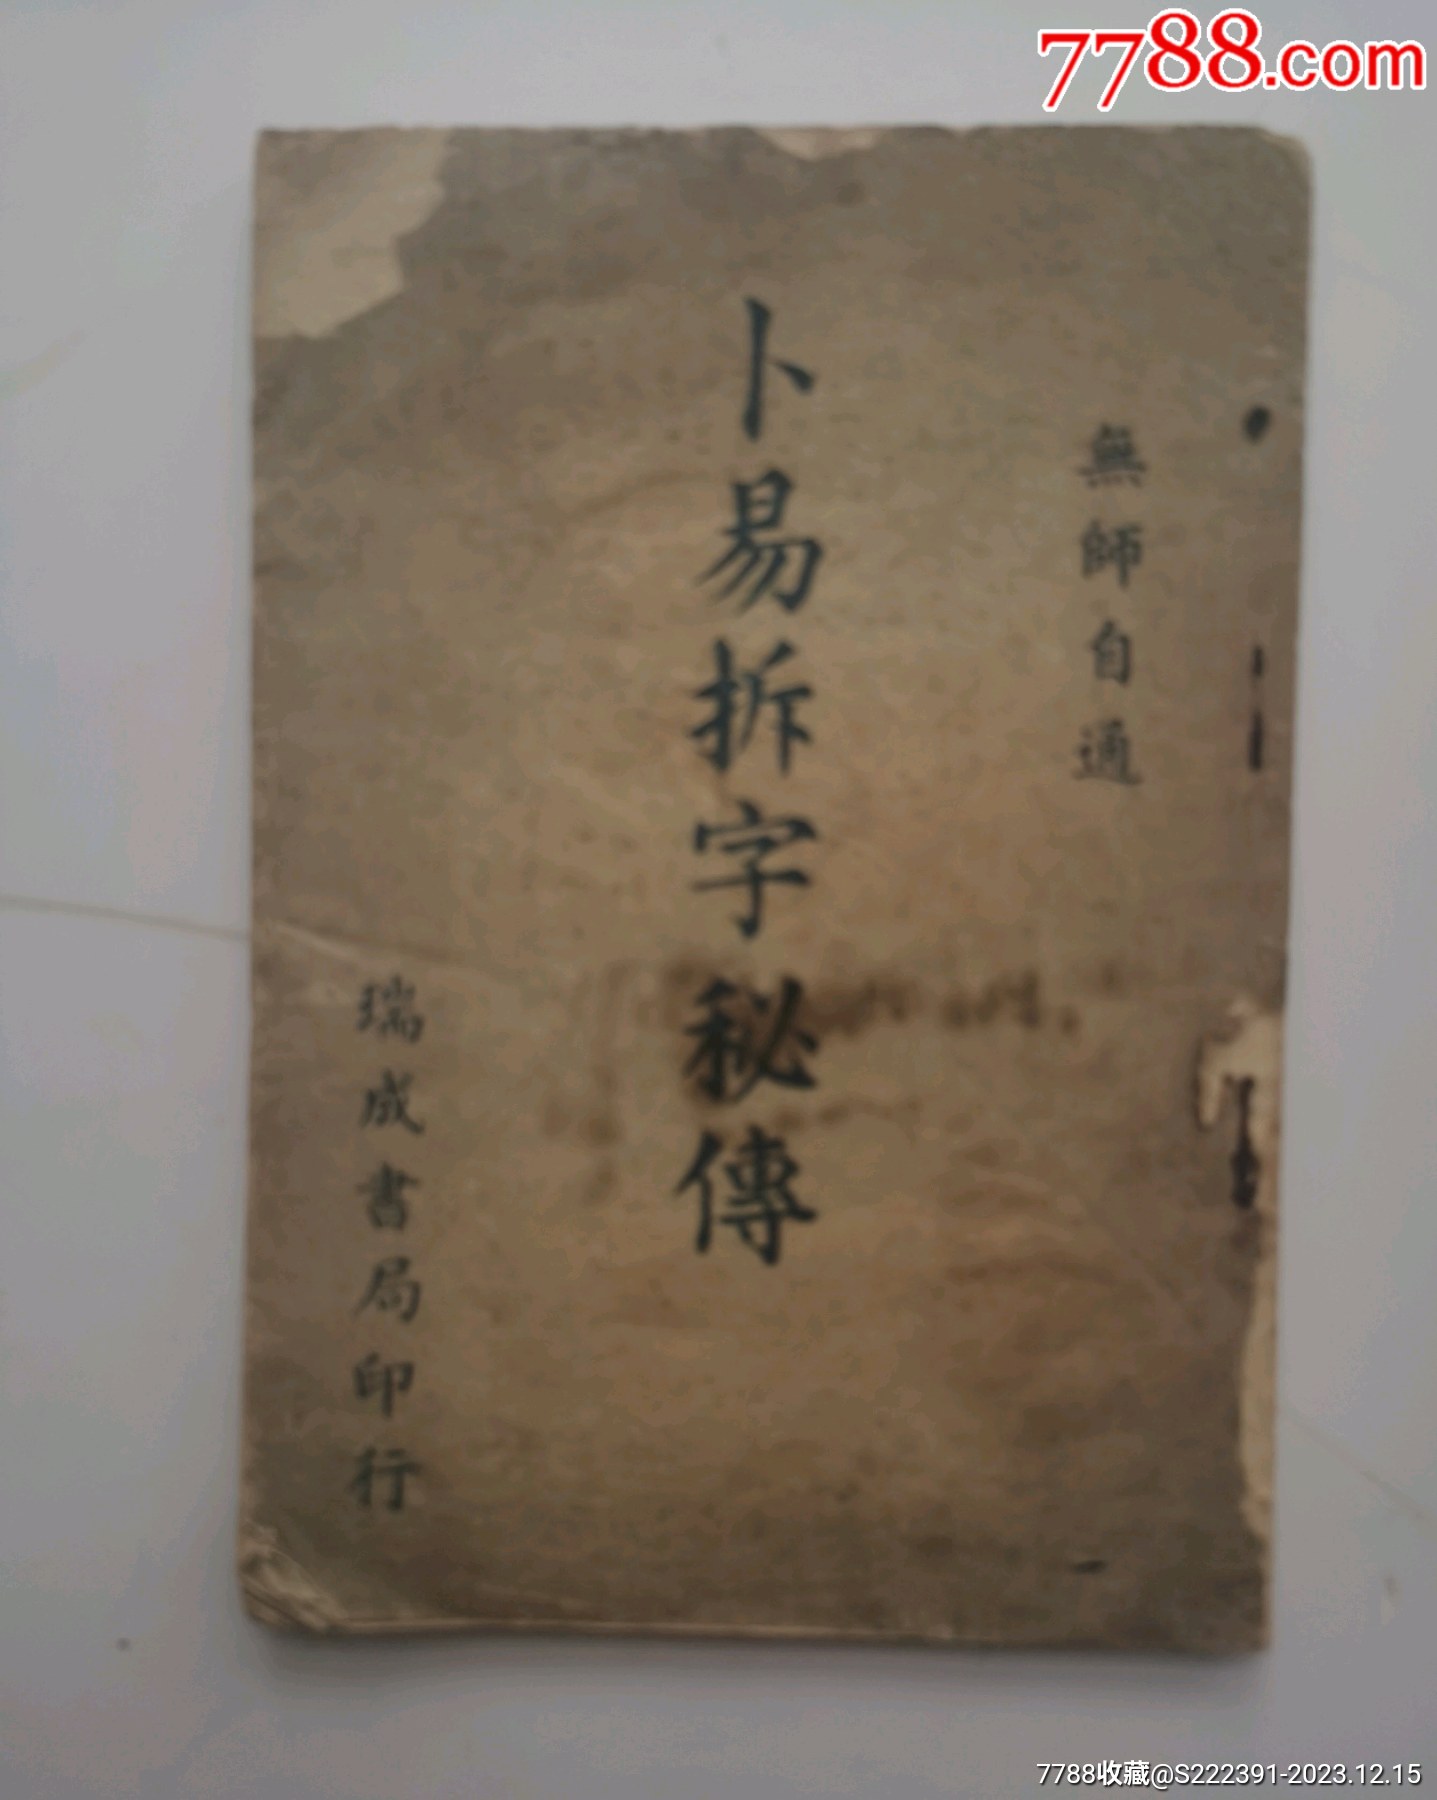 7788.com
無師自通
卜易拆字秘傳
瑞成書局印行
7788收藏@S222391-2023.12.15